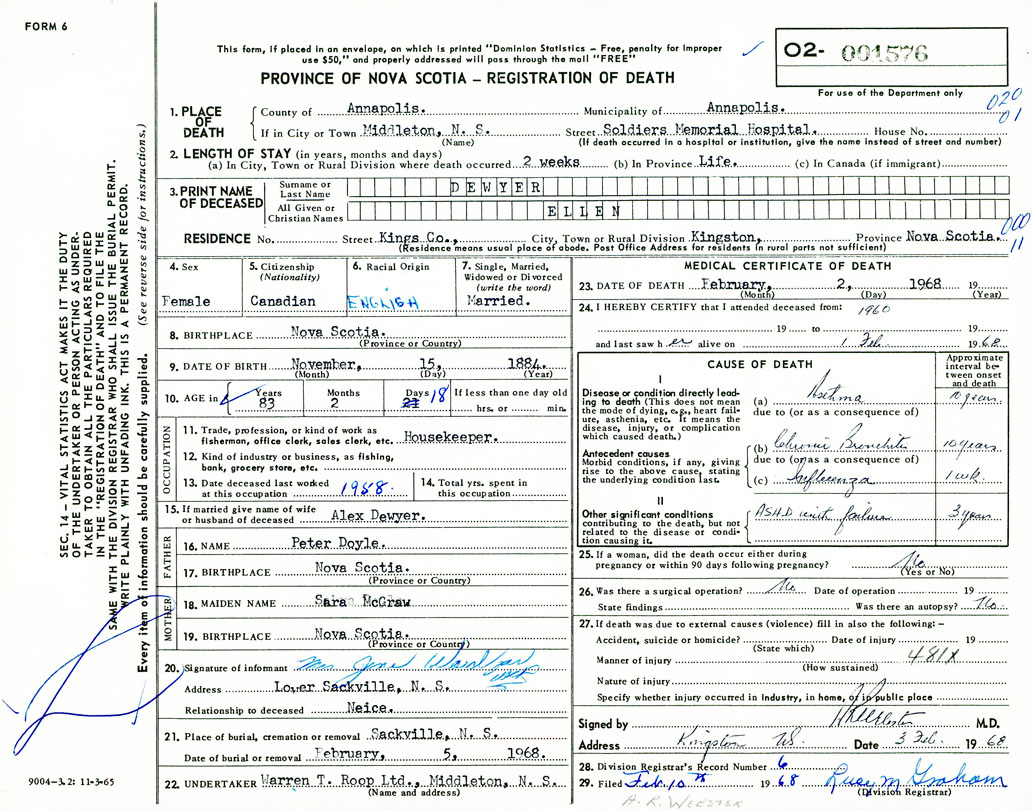 FORM 6
This form, if placed in an envelope, on which is printed "Dominion Statistics – Free, penalty for improper
use $50," and properly addressed will pass through the mail "FREE"
PROVINCE OF NOVA SCOTIA – REGISTRATION OF DEATH
02- 001576
For use of the Department only
020
01
1. PLACE OF DEATH
County of Annapolis. Municipality of Annapolis.
If in City or Town Middleton, N. S. Street Soldiers Memorial Hospital. House No.
(Name) (If death occurred in a hospital or institution, give the name instead of street and number)
2. LENGTH OF STAY (in years, months and days)
(a) In City, Town or Rural Division where death occurred 2 weeks (b) In Province Life. (c) In Canada (if immigrant)
3. PRINT NAME OF DECEASED
Surname or Last Name DEWYER
All Given or Christian Names ELLEN
000
11
RESIDENCE No. Street Kings Co., City, Town or Rural Division Kingston, Province Nova Scotia.
(Residence means usual place of abode. Post Office Address for residents in rural parts not sufficient)
4. Sex
Female
5. Citizenship
(Nationality)
Canadian
6. Racial Origin
ENGLISH
7. Single, Married,
Widowed or Divorced
(write the word)
Married.
8. BIRTHPLACE Nova Scotia.
(Province or Country)
9. DATE OF BIRTH November, 15, 1884.
(Month) (Day) (Year)
10. AGE in Years Months Days 18 If less than one day old
83 2 21 hrs. or min.
OCCUPATION
11. Trade, profession, or kind of work as
fisherman, office clerk, sales clerk, etc. Housekeeper.
12. Kind of industry or business, as fishing,
bank, grocery store, etc.
13. Date deceased last worked
at this occupation 1958.
14. Total yrs. spent in
this occupation
15. If married give name of wife
or husband of deceased Alex Dewyer.
FATHER
16. NAME Peter Doyle.
17. BIRTHPLACE Nova Scotia.
(Province or Country)
MOTHER
18. MAIDEN NAME Sara McGraw
19. BIRTHPLACE Nova Scotia.
(Province or Country)
20. Signature of informant Mrs
Address Lower Sackville, N. S.
Relationship to deceased Neice.
21. Place of burial, cremation or removal Sackville, N. S.
Date of burial or removal February, 5, 1968.
22. UNDERTAKER Warren T. Roop Ltd., Middleton, N. S.
(Name and address)
MEDICAL CERTIFICATE OF DEATH
23. DATE OF DEATH February, 2, 1968 19
(Month) (Day) (Year)
24. I HEREBY CERTIFY that I attended deceased from: 1960
19 to 19
and last saw her alive on 1 Feb 1968.
CAUSE OF DEATH
Approximate
interval between onset
and death
I
Disease or condition directly leading to death (This does not mean
the mode of dying, e.g., heart failure, asthenia, etc. It means the
disease, injury, or complication
which caused death.)
(a) Asthma 10 years.
due to (or as a consequence of)
Antecedent causes
Morbid conditions, if any, giving
rise to the above cause, stating
the underlying condition last.
(b) Chronic Bronchitis 10 years
due to (or as a consequence of)
(c) Influenza 1 wk.
II
Other significant conditions
contributing to the death, but not
related to the disease or condition causing it.
ASHD with failure 3 years
25. If a woman, did the death occur either during
pregnancy or within 90 days following pregnancy? No
(Yes or No)
26. Was there a surgical operation? No Date of operation 19
State findings Was there an autopsy? No.
27. If death was due to external causes (violence) fill in also the following: –
Accident, suicide or homicide? Date of injury 19
(State which)
Manner of injury 481X
(How sustained)
Nature of injury
Specify whether injury occurred in Industry, in home, or in public place
Signed by M.D.
Address Kingston NS. Date 3 Feb. 1968
28. Division Registrar's Record Number 6
29. Filed Feb 10th 1968 Lucy M Graham
(Division Registrar)
A. R. WEBSTER
SEC. 14 – VITAL STATISTICS ACT MAKES IT THE DUTY
OF THE UNDERTAKER OR PERSON ACTING AS UNDERTAKER TO OBTAIN ALL THE PARTICULARS REQUIRED
IN THE "REGISTRATION OF DEATH" AND TO FILE THE
SAME WITH THE DIVISION REGISTRAR WHO SHALL ISSUE THE BURIAL PERMIT.
WRITE PLAINLY WITH UNFADING INK. THIS IS A PERMANENT RECORD.
Every item of information should be carefully supplied. (See reverse side for instructions.)
9004-3.2: 11-3-65